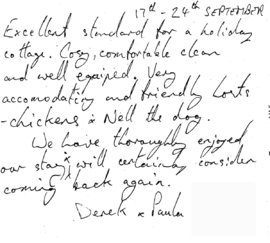 17th - 24th SEPTEMBER
Excellent standard for a holiday
cottage. Cosy, comfortable clean
and well eqaiped. Very
accomodating and friendly hosts
- chickens & Nell the dog.
We have thoroughly enjoyed
our stay & will certainly consider
coming back again.
Derek & Paula